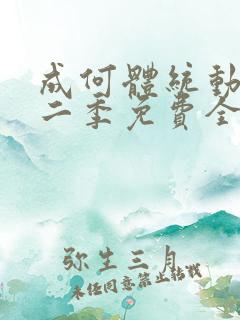 成何體統動
二季免費全
弥生三月
未经同意禁止转载